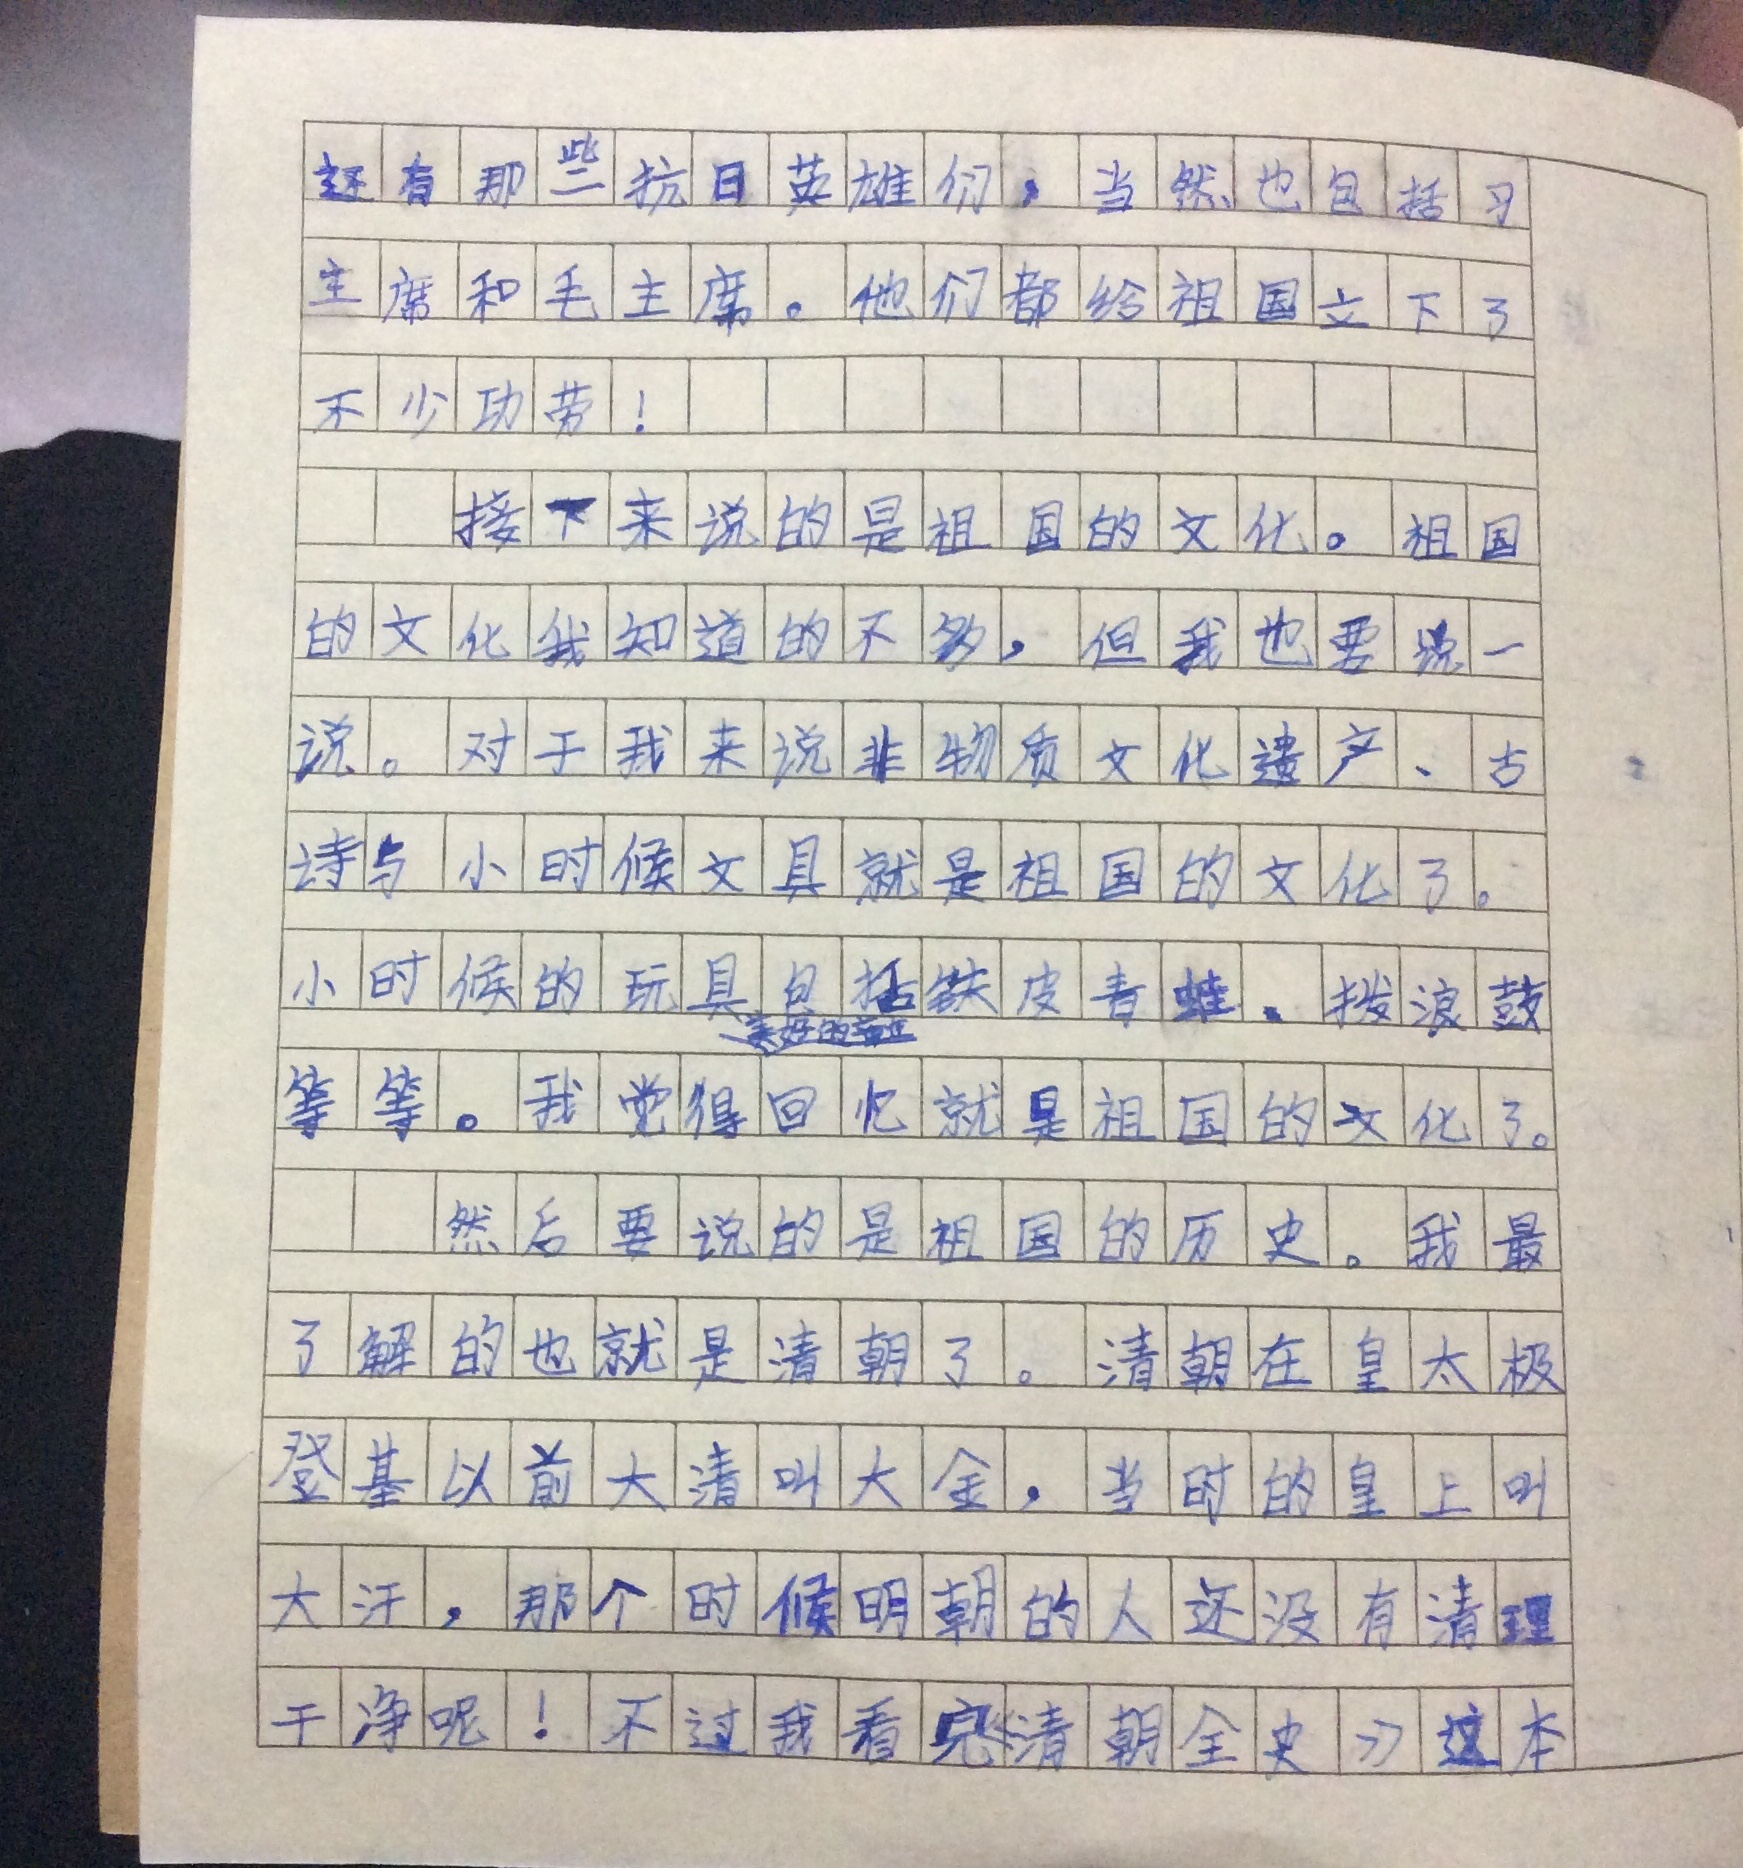 还有那些抗日英雄们，当然也包括习
主席和毛主席。他们都给祖国立下了
不少功劳！
接下来说的是祖国的文化。祖国
的文化我知道的不多，但我也要说一
说。对于我来说非物质文化遗产、古
诗与小时候文具就是祖国的文化了。
小时候的玩具包括铁皮青蛙、拨浪鼓
美好的
等等。我觉得回忆就是祖国的文化了。
然后要说的是祖国的历史。我最
了解的也就是清朝了。清朝在皇太极
登基以前大清叫大金，当时的皇上叫
大汗，那个时候明朝的人还没有清理
干净呢！不过我看完《清朝全史》这本